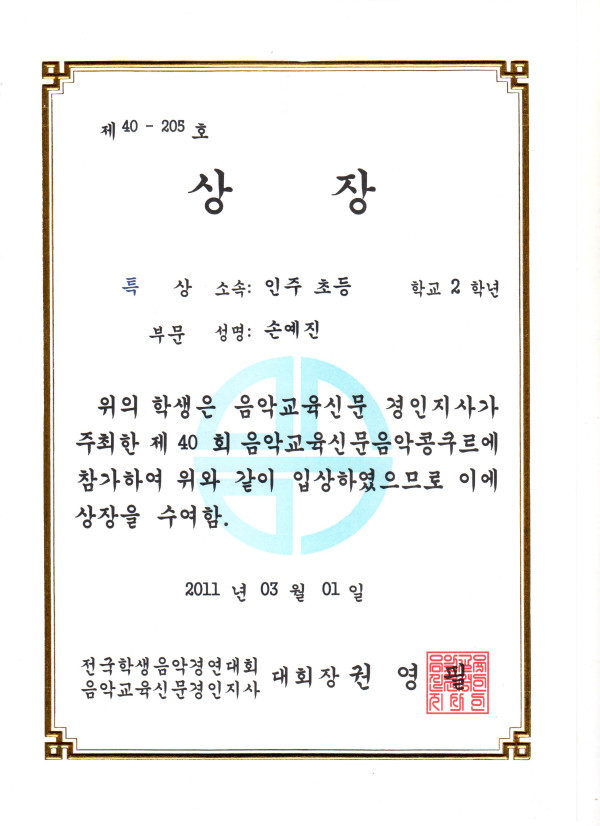 제 40 - 205 호
상 장
특 상 소속: 인주 초등 학교 2 학년
부문 성명: 손예진
위의 학생은 음악교육신문 경인지사가
주최한 제 40 회 음악교육신문음악콩쿠르에
참가하여 위와 같이 입상하였으므로 이에
상장을 수여함.
2011 년 03 월 01 일
전국학생음악경연대회
음악교육신문경인지사 대회장 권 영 필